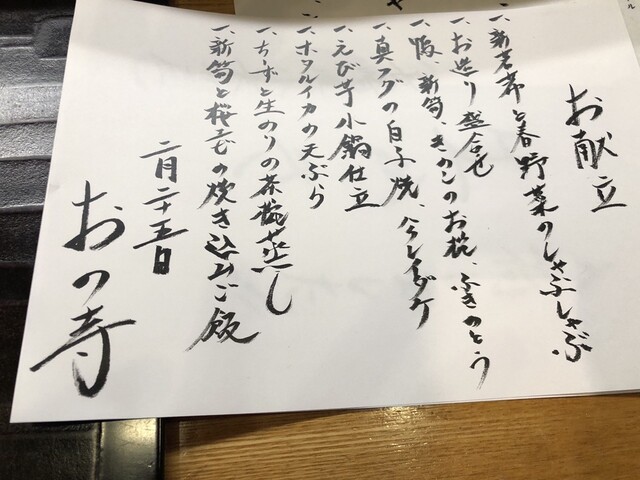 お献立
一、新若布と春野菜のしゃぶしゃぶ
一、お造り盛合せ
一、新筍、きのこのお椀、ふきのとう
一、真フグの白子焼、ハクレイダケ
一、えび芋小鍋仕立
一、ホタルイカの天ぷら
一、ちーずと生のりの茶碗蒸し
一、新筍と桜えびの炊き込みご飯
二月二十五日
おの寺